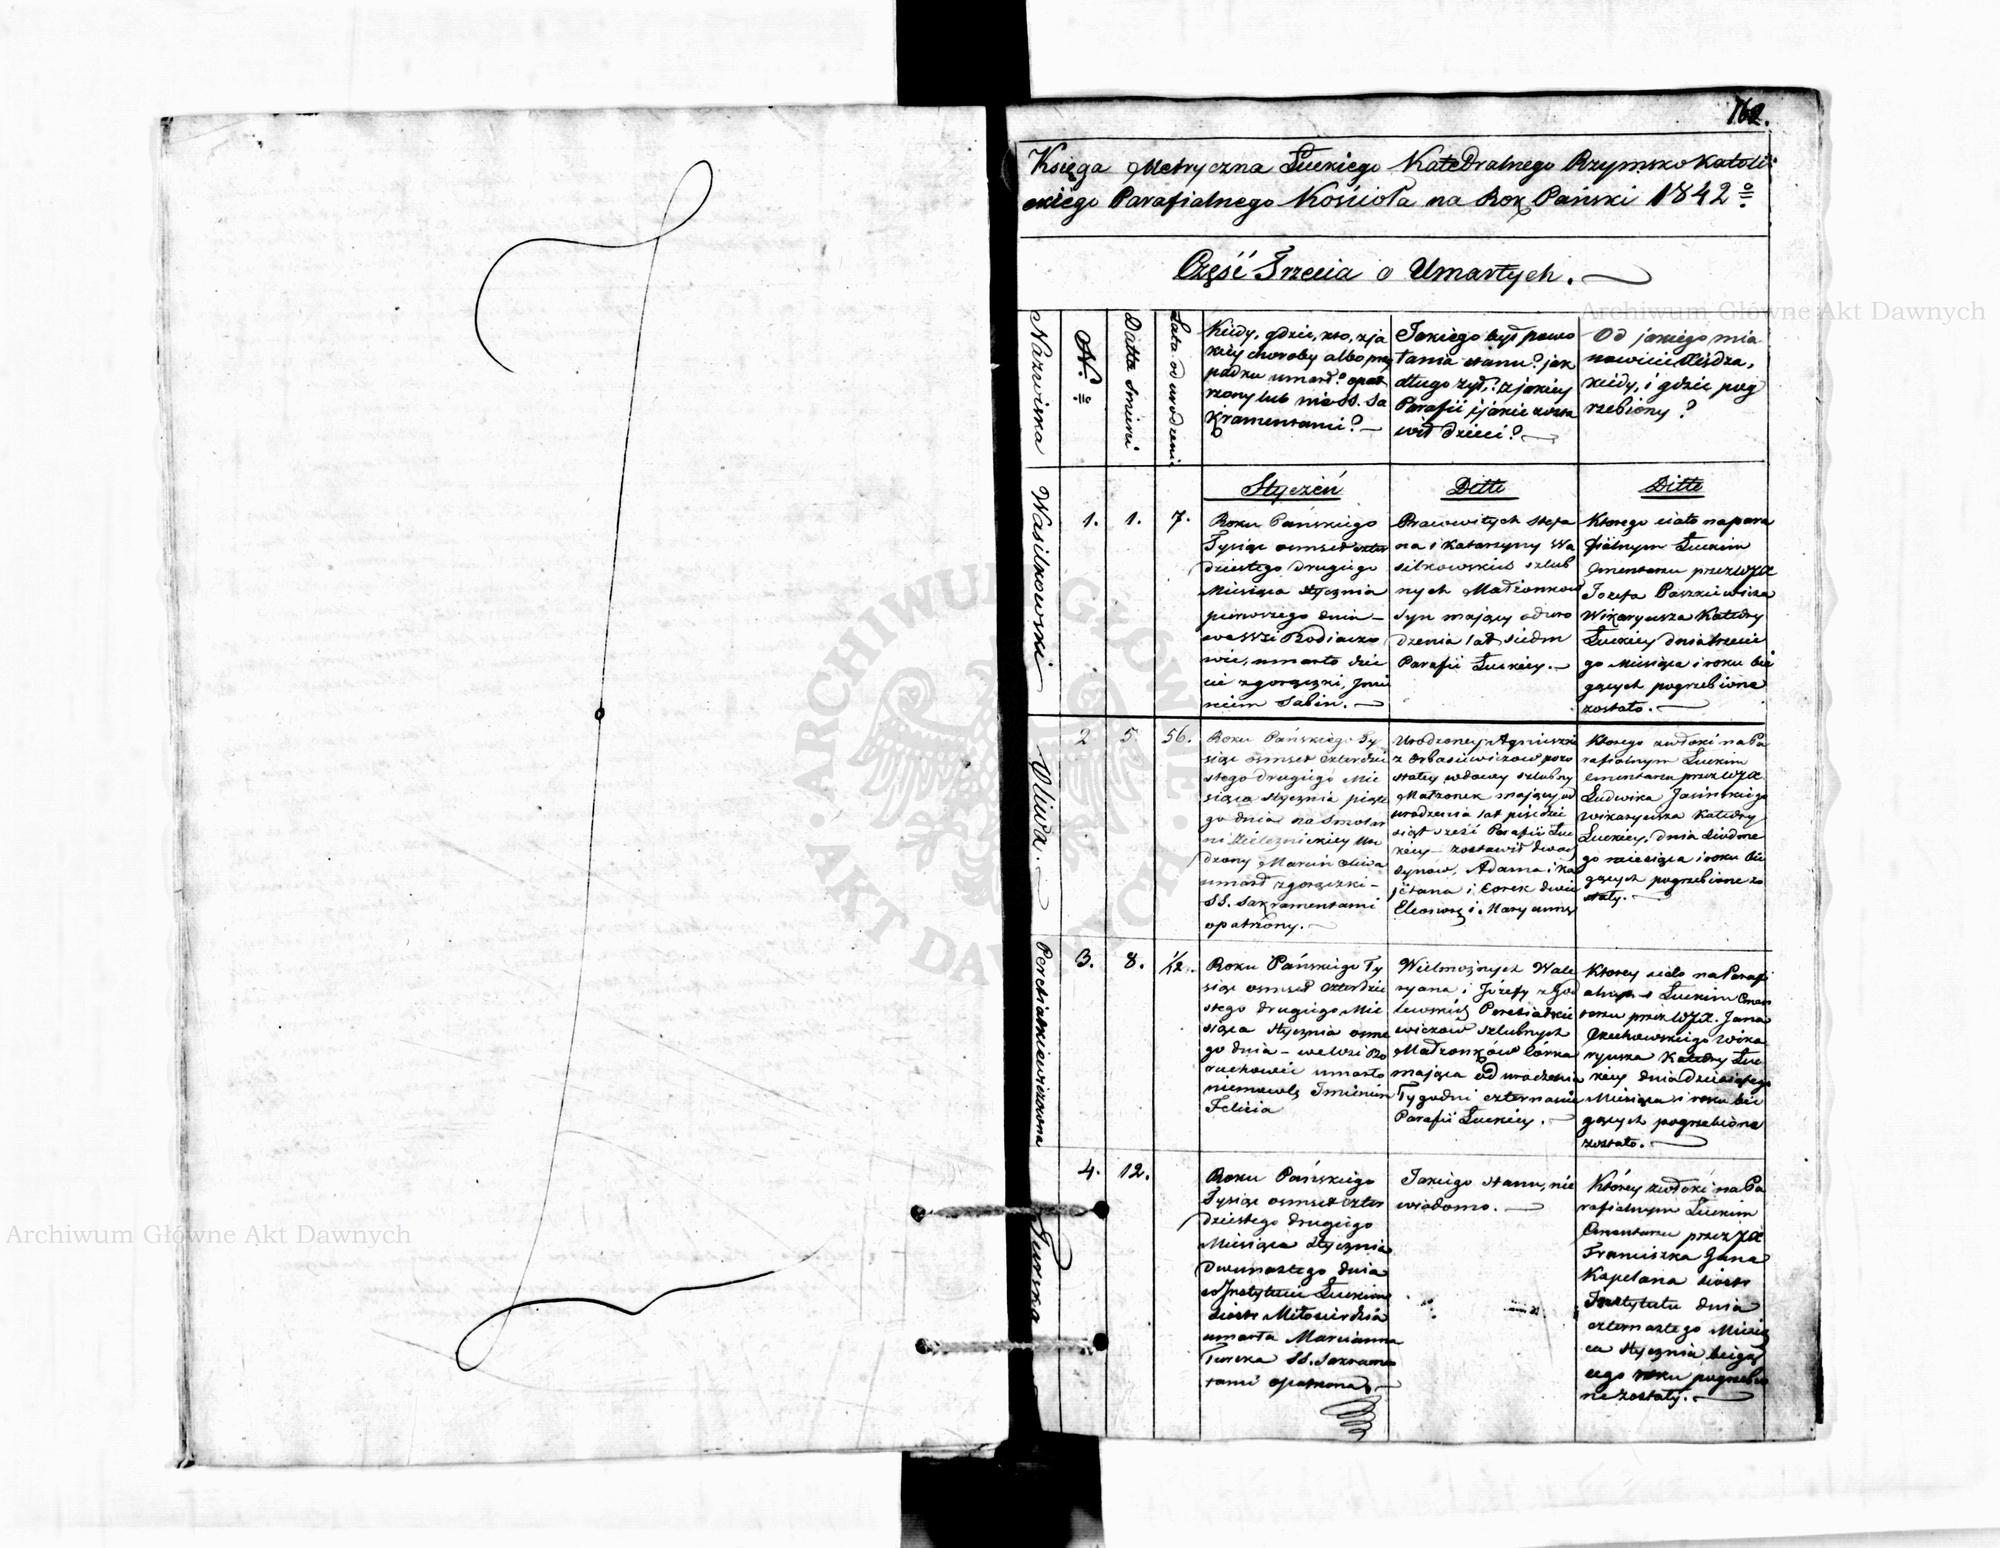 162.
Księga Metryczna Łuckiego Katedralnego Rzymsko Katolic
kiego Parafialnego Kościoła na Rok Pański 1842º
Część Trzecia o Umarłych.
Archiwum Główne Akt Dawnych
Nazwiska
N.
Datta śmierci
Lata od urodzenia
Kiedy, gdzie, kto, z ja
kiey choroby albo przy
padku umarł? opat
rzony lub nie SS. Sa
kramentami?
Jakiego był powo
łania stanu? jak
długo żył? z jakiey
Parafii i jakie zosta
wił dzieci?
Od jakiego mia
nowicie Xiędza,
kiedy, i gdzie pog
rzebiony?
Wasilkowski
1.
1.
7.
Styczeń
Roku Pańskiego
Tysiąc osmset czter
dziestego drugiego
Miesiąca Stycznia
pierwszego dnia
we wsi Rodiaczo
wie, umarło dzie
cie z gorączki, Jmie
niem Sabin.
Ditte
Pracowitych Stefa
na i Katarzyny Wa
silkowskich szlub
nych Małżonków
syn mający od uro
dzenia lat siedm
Parafii Łuckiey.
Ditte
Ktorego ciało na para
fialnym Łuckim
Cmentarzu przez WJX
Jozefa Paszkiewicza
Wikaryusza Katedry
Łuckiey dnia trzecie
go Miesiąca i roku bie
gących pogrzebione
zostało.
Oliwa.
2
5
56.
Roku Pańskiego Ty
siąc osmset czterdzie
stego drugiego Mie
siąca Stycznia piąte
go dnia na Smolar
ni Zieleznickiey Uro
dzony Marcin Oliwa
umarł z gorączki
SS. Sakramentami
opatrzony.
Urodzoney Agnieszki
z Orbasiewiczow pozo
stałey wdowy szlubny
Małżonek mający od
urodzenia lat pięćdzie
siąt sześć Parafii Łuc
kiey zostawił dwoch
synow, Adama i Ka
jetana i corek dwie
Eleonorę i Maryannę
Ktorego zwłoki na Pa
rafialnym Łuckim
Cmentarzu przez WJX
Ludwika Jasińskiego
Wikaryusza Katedry
Łuckiey, dnia siodme
go miesiąca i roku bie
gących pogrzebione zo
stały.
Peretiatkiewiczowna
3.
8.
1/12.
Roku Pańskiego Ty
siąc osmset czterdzie
stego drugiego Mie
siąca Stycznia osme
go dnia we wsi Bo
ruchowie umarło
niemowlę Jmieniem
Felicia
Wielmożnych Wale
ryana i Józefy z God
lewskich Peretiatkie
wiczow szlubnych
Małżonków Córka
mająca od urodzenia
Tygodni czternaście
Parafii Łuckiey.
Ktorey ciało na Parafi
alnym Łuckim Cmen
tarzu przez WJX. Jana
Wika
ryusza Katedry Łuc
kiey dnia dziesiątego
Miesiąca i roku bie
gących pogrzebione
zostało.
Turska
4.
12.
Roku Pańskiego
Tysiąc osmset czter
dziestego drugiego
Miesiąca Stycznia
Dwunastego dnia
w Instytucie Łuckim
Siostr Miłosierdzia
umarła Marcianna
Turska SS. Sakramen
tami opatrzona
Jakiego stanu, nie
wiadomo.
Którey zwłoki na Pa
rafialnym Łuckim
Cmentarzu przez JX
Franciszka Jana
Kapelana siostr
Instytutu dnia
czternastego Miesią
ca Stycznia biegą
cego roku pogrzebio
ne zostały.
Archiwum Główne Akt Dawnych
ARCHIWUM GŁÓWNE
AKT DAWNYCH